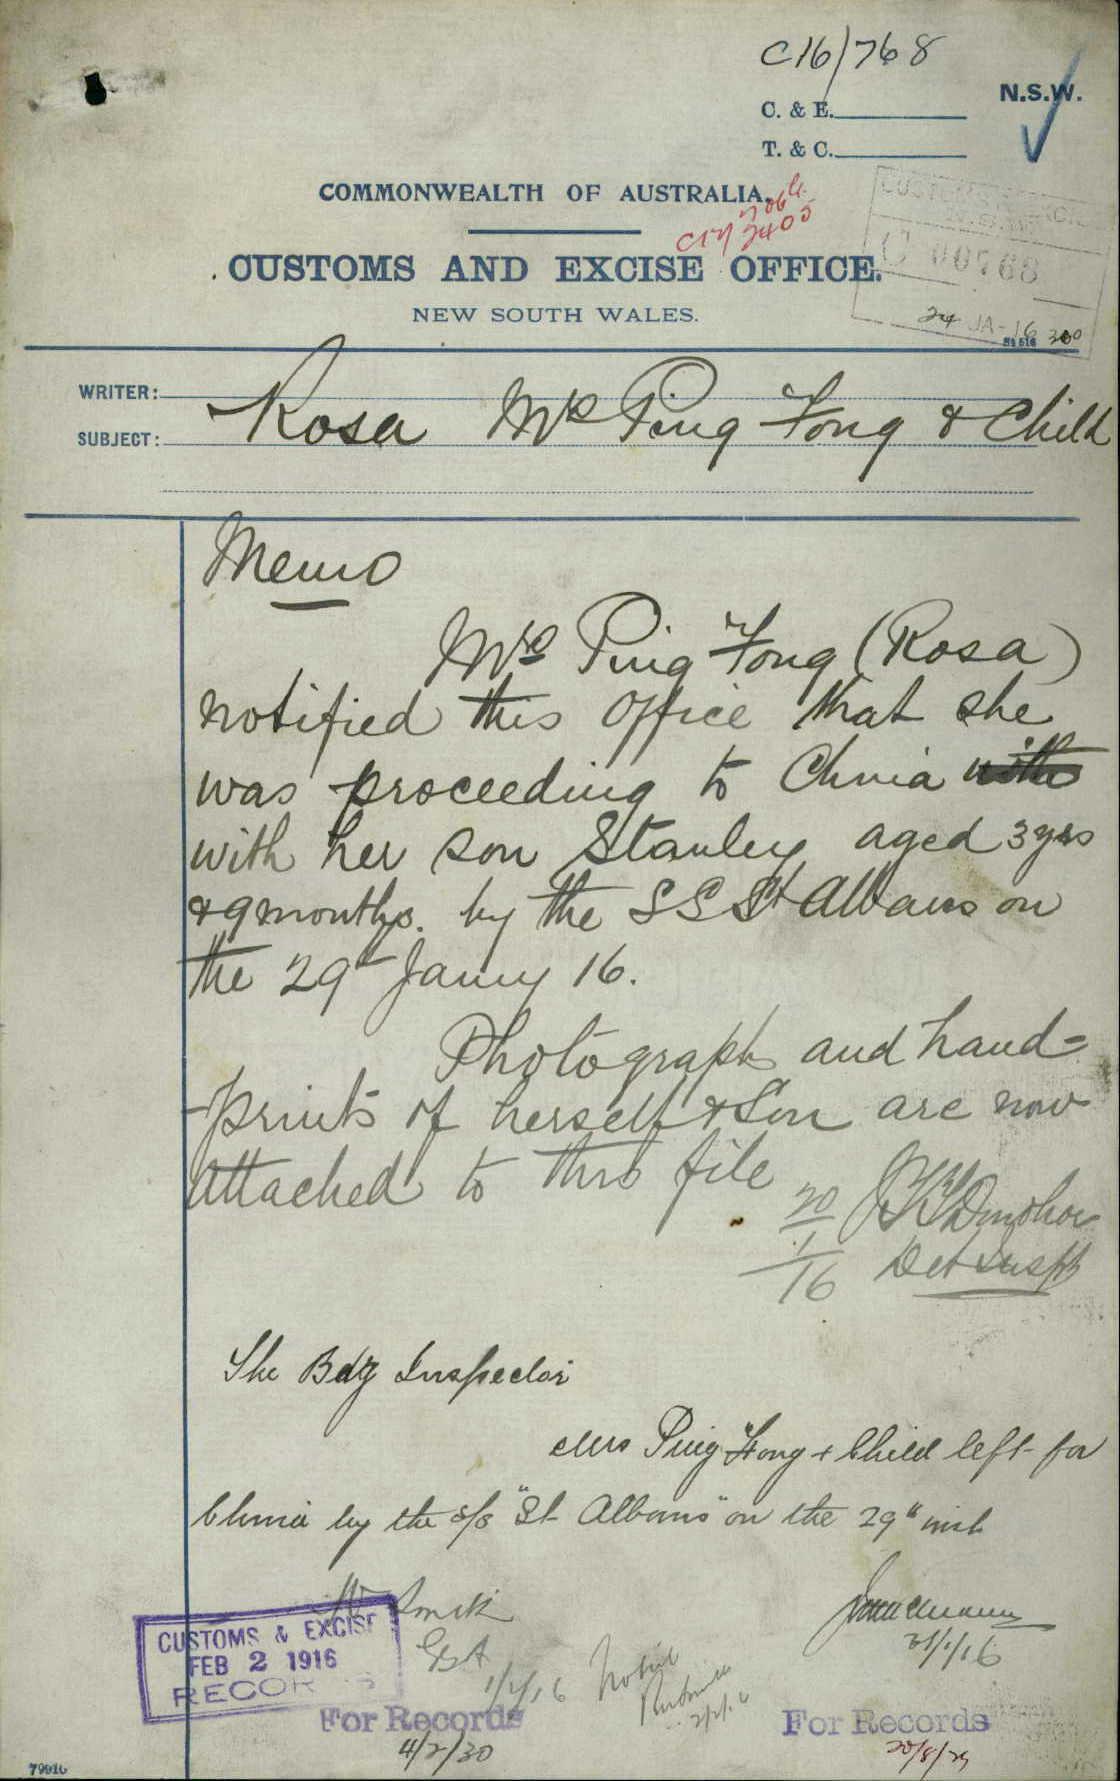 C16/768
N.S.W.
C. & E.
T. & C.
COMMONWEALTH OF AUSTRALIA.
CUSTOMS AND EXCISE OFFICE.
NEW SOUTH WALES.
C 00768
24 JA-16
WRITER:
SUBJECT: Rosa Mrs Ping Fong & Child
Memo
Mrs Ping Fong (Rosa)
notified this Office that she
was proceeding to China with
with her son Stanley aged 3 yrs
& 9 months. by the SS St Albans on
the 29th Jany 16.
Photograph and hand-
-prints of herself & Son are now
attached to this file
20/1/16 Donohoe
Det Inspr
The Bdg Inspector
Mrs Ping Fong & Child left for
China by the s/s "St Albans" on the 29" inst
31/1/16
Mr Smith
1/2/16
Noted
2/2/16
CUSTOMS & EXCISE
FEB 2 1916
RECORDS
For Records
4/2/30
For Records
20/8/29
79916